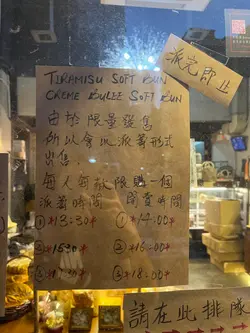 派完即止
TIRAMISU SOFT BUN
CREME BULEE SOFT BUN
由於限量發售
所以會以派籌形式
出售,
每人每款限購一個
派籌時間 開賣時間
① *13:30* ① *14:00*
② *15:30* ② *16:00*
③ *17:30* ③ *18:00*
請在此排隊